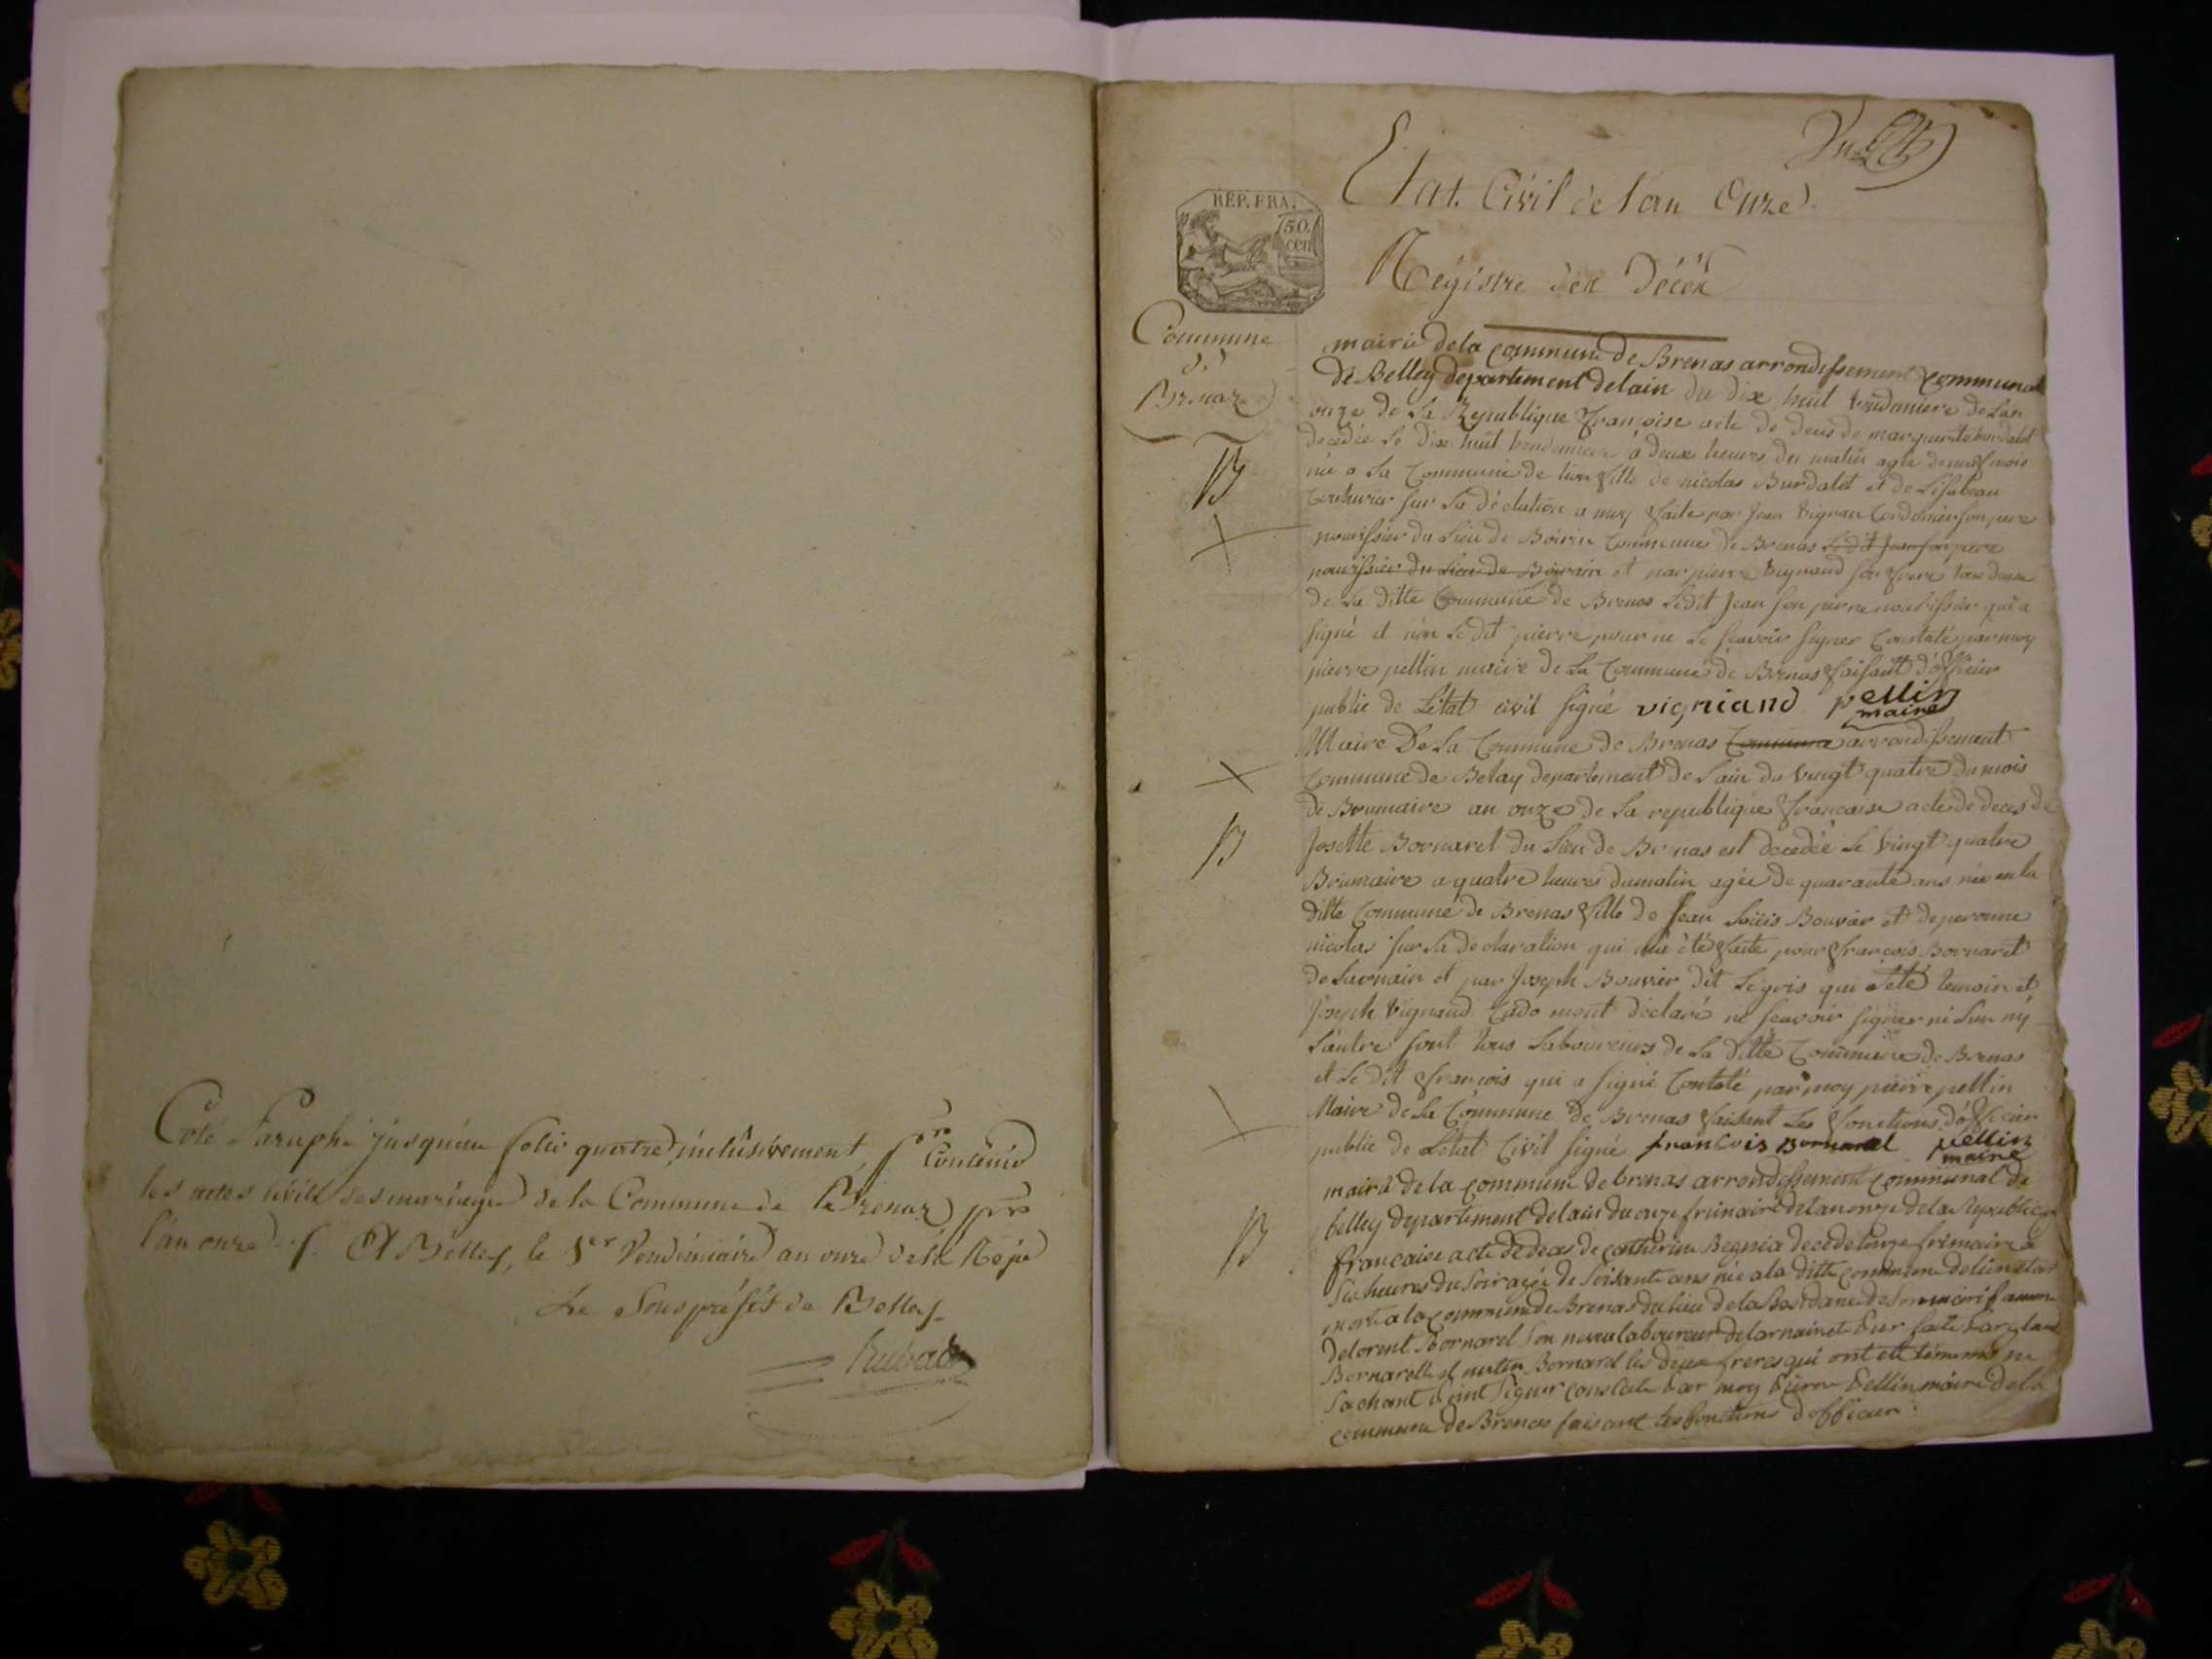 Coté Paraphé jusqu'au folio quatre inclusivement, pour Contenir
les actes civils des mariages de la Commune de Brenaz pour
l'an onze. A Belley, le 1er Vendémiaire an onze de la Rép
Le Souspréfet de Belley
Etat Civil de l'an Onze
REP. FRA.
50.
cen
Régistre des Décès
Commune
de
Brenaz
mairie de la commune de Brenas arrondissement communal
de Belley departement de lain du dix huit vendemiere de Lan
onze de La Republique francoise acte de deces de marguerite burdalet
decedée Le dix huit vendemiere à deux heures du matin agée de neuf mois
née a La Commune de lion fille de nicolas Burdalet et de Lisabeau
Couturier sur La déclation a moy faite par Jean vignan Cordonier son pere
nourissier du Lieu de Boirin Commune de Brenas Le dit Jean son pere
nourissier du Lieu de Boirain et par pierre vignand son frere tous deux
de La ditte Commune de Brenas Ledit Jean son perre nourissier qui a
signé et non Le dit pierre pour ne Le scavoir signer Constaté par moy
pierre pellin maire de La Commune de Brenas faisant d'officier
public de L'état civil signé vigniand pellin
maire
Maire De La Commune de Brenas Commune arrondissement
Commune de Belay departement de Lain du vingt quatre du mois
de Brumaire an onze de La republique francaise acte de deces de
Josette Bornaret du Lieu de Brenas est decedée Le vingt quatre
Brumaire a quatre heures du matin agée de quarante ans née en La
ditte Commune de Brenas fille de Jean Loüis Bouvier et de peronne
nicolas sur La declaration qui ma été faite pour françois Bornaret
de Lavnain et par Joseph Bouvier dit Legris qui été temoin et
Joseph vignand Cado mont déclaré ne scavoir signer ni Lun ny
L'autre sont tous Laboureurs de La ditte Commune de Brenas
et Le dit francois qui a signé Contaté par moy pierre pellin
Maire de La Commune de Brenas faisant Les fonctions d'officier
public de Létat Civil signé francois Bornarel pellin
maire
mairie de la commune de brenas arrondissement communal de
belley departement de lain du onze frimaire de lan onze de la Republique
francaise acte de deces de catherine Begnia decedé le onze frimaire a
Six heures du Soir agée de Soisante ans née a la ditte commune de
morte a la commune de Brenas du lieu de la de son mari
de lorent Bornarel Son neveu laboureur de larnain et Sur faite par
Bornarelle et Bornarel les deux freres qui ont été témoins ne
Sachant point Signer constaté par moy pierre pellin maire de la
commune de Brenas faisant les fonctions d'officier
B
B
B